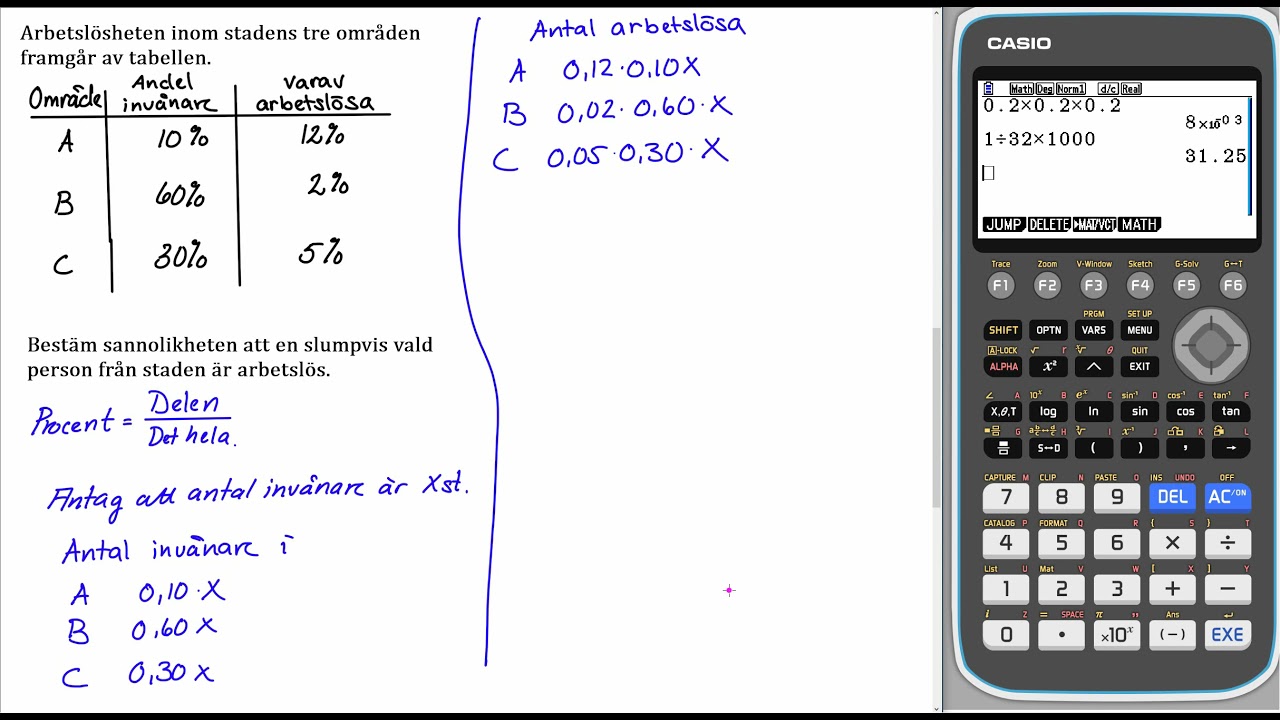 Arbetslösheten inom stadens tre områden
framgår av tabellen.
Område Andel invånare varav arbetslösa
A 10% 12%
B 60% 2%
C 30% 5%
Bestäm sannolikheten att en slumpvis vald
person från staden är arbetslös.
Procent = Delen / Det hela.
Antag att antal invånare är X st.
Antal invånare i
A 0,10·X
B 0,60X
C 0,30X
Antal arbetslösa
A 0,12·0,10X
B 0,02·0,60·X
C 0,05·0,30·X
CASIO
Math Deg Norm1 d/c Real
0.2×0.2×0.2
8×10⁻⁰³
1÷32×1000
31.25
JUMP DELETE ►MAT/VCT MATH
Trace Zoom V-Window Sketch G-Solv G↔T
F1 F2 F3 F4 F5 F6
PRGM SET UP
SHIFT OPTN VARS MENU
A-LOCK √ r ∛ θ QUIT
ALPHA x² ^ EXIT
∠ A 10ˣ B eˣ C sin⁻¹ D cos⁻¹ E tan⁻¹ F
X,θ,T log ln sin cos tan
G H ∛ I x⁻¹ J K L
S↔D ( ) , →
CAPTURE M CLIP N PASTE O INS UNDO OFF
7 8 9 DEL AC/ON
CATALOG P FORMAT Q R { S } T
4 5 6 × ÷
List U Mat V W [ X ] Y
1 2 3 + −
i Z = SPACE π " Ans
0 • ×10ˣ (−) EXE